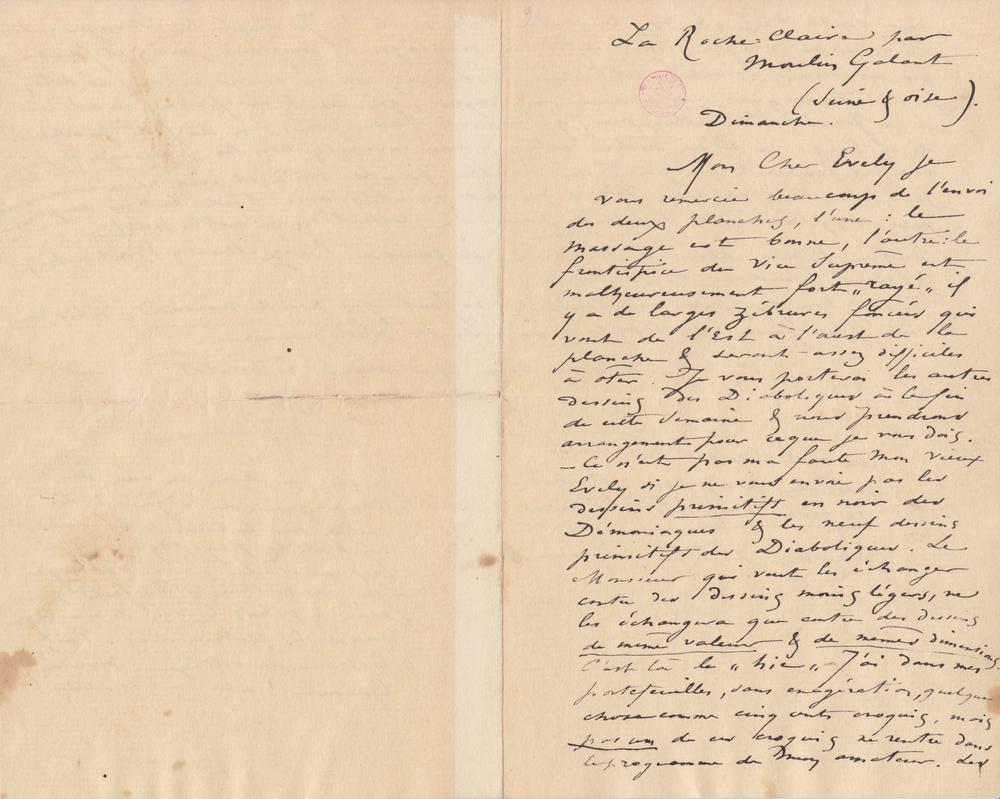 La Roche-Claire par
Moulin Galant
(Seine & oise).
Dimanche.
Mon Cher Evely je
vous remercie beaucoup de l'envoi
des deux planches, l'une : le
massage est bonne, l'autre : le
frontispice du Vice Suprême est
malheureusement fort „rayé„ il
y a de larges zébrures foncées qui
vont de l'Est à l'ouest de la
planche & seront assez difficiles
à oter. Je vous porterai les autres
dessins des Diaboliques à la fin
de cette semaine & nous prendrons
arrangement pour ce que je vous dois.
– Ce n'est pas ma faute mon vieux
Evely si je ne vous envoie pas les
dessins primitifs en noir des
Démoniaques & les neuf dessins
primitifs des Diaboliques. Le
Monsieur qui veut les échanger
contre des dessins moins légers, ne
les échangera que contre des dessins
de même valeur & de mêmes dimensions.
C'est là le „hic„ J'ai dans mes
portefeuilles, sans exagération, quelque
chose comme cinq cents croquis, mais
pas un de ces croquis ne rentre dans
le programme de mon amateur. Les